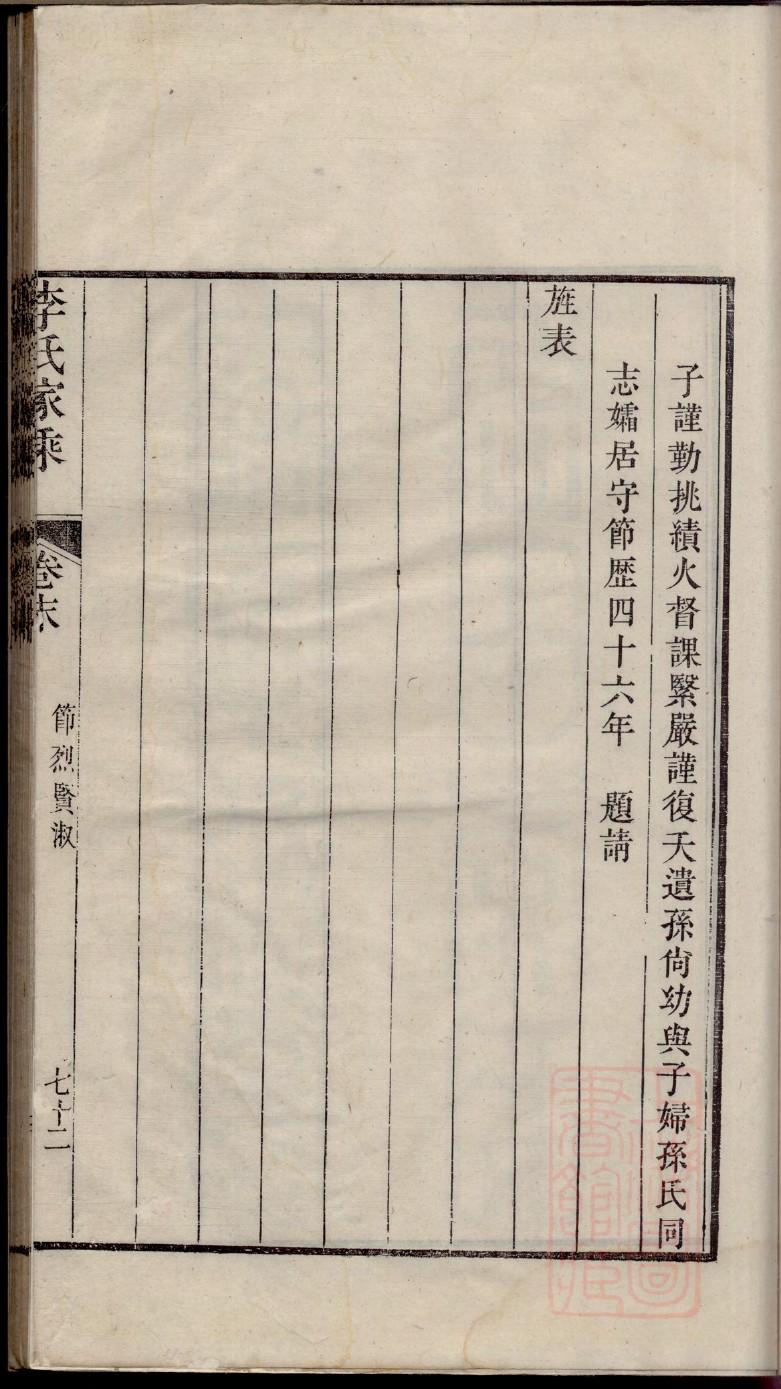 子謹勤挑績火督課綦嚴謹復夭遺孫尙幼與子婦孫氏同
志孀居守節歷四十六年　題請
旌表
李氏家乘
卷末
節烈賢淑
七十二